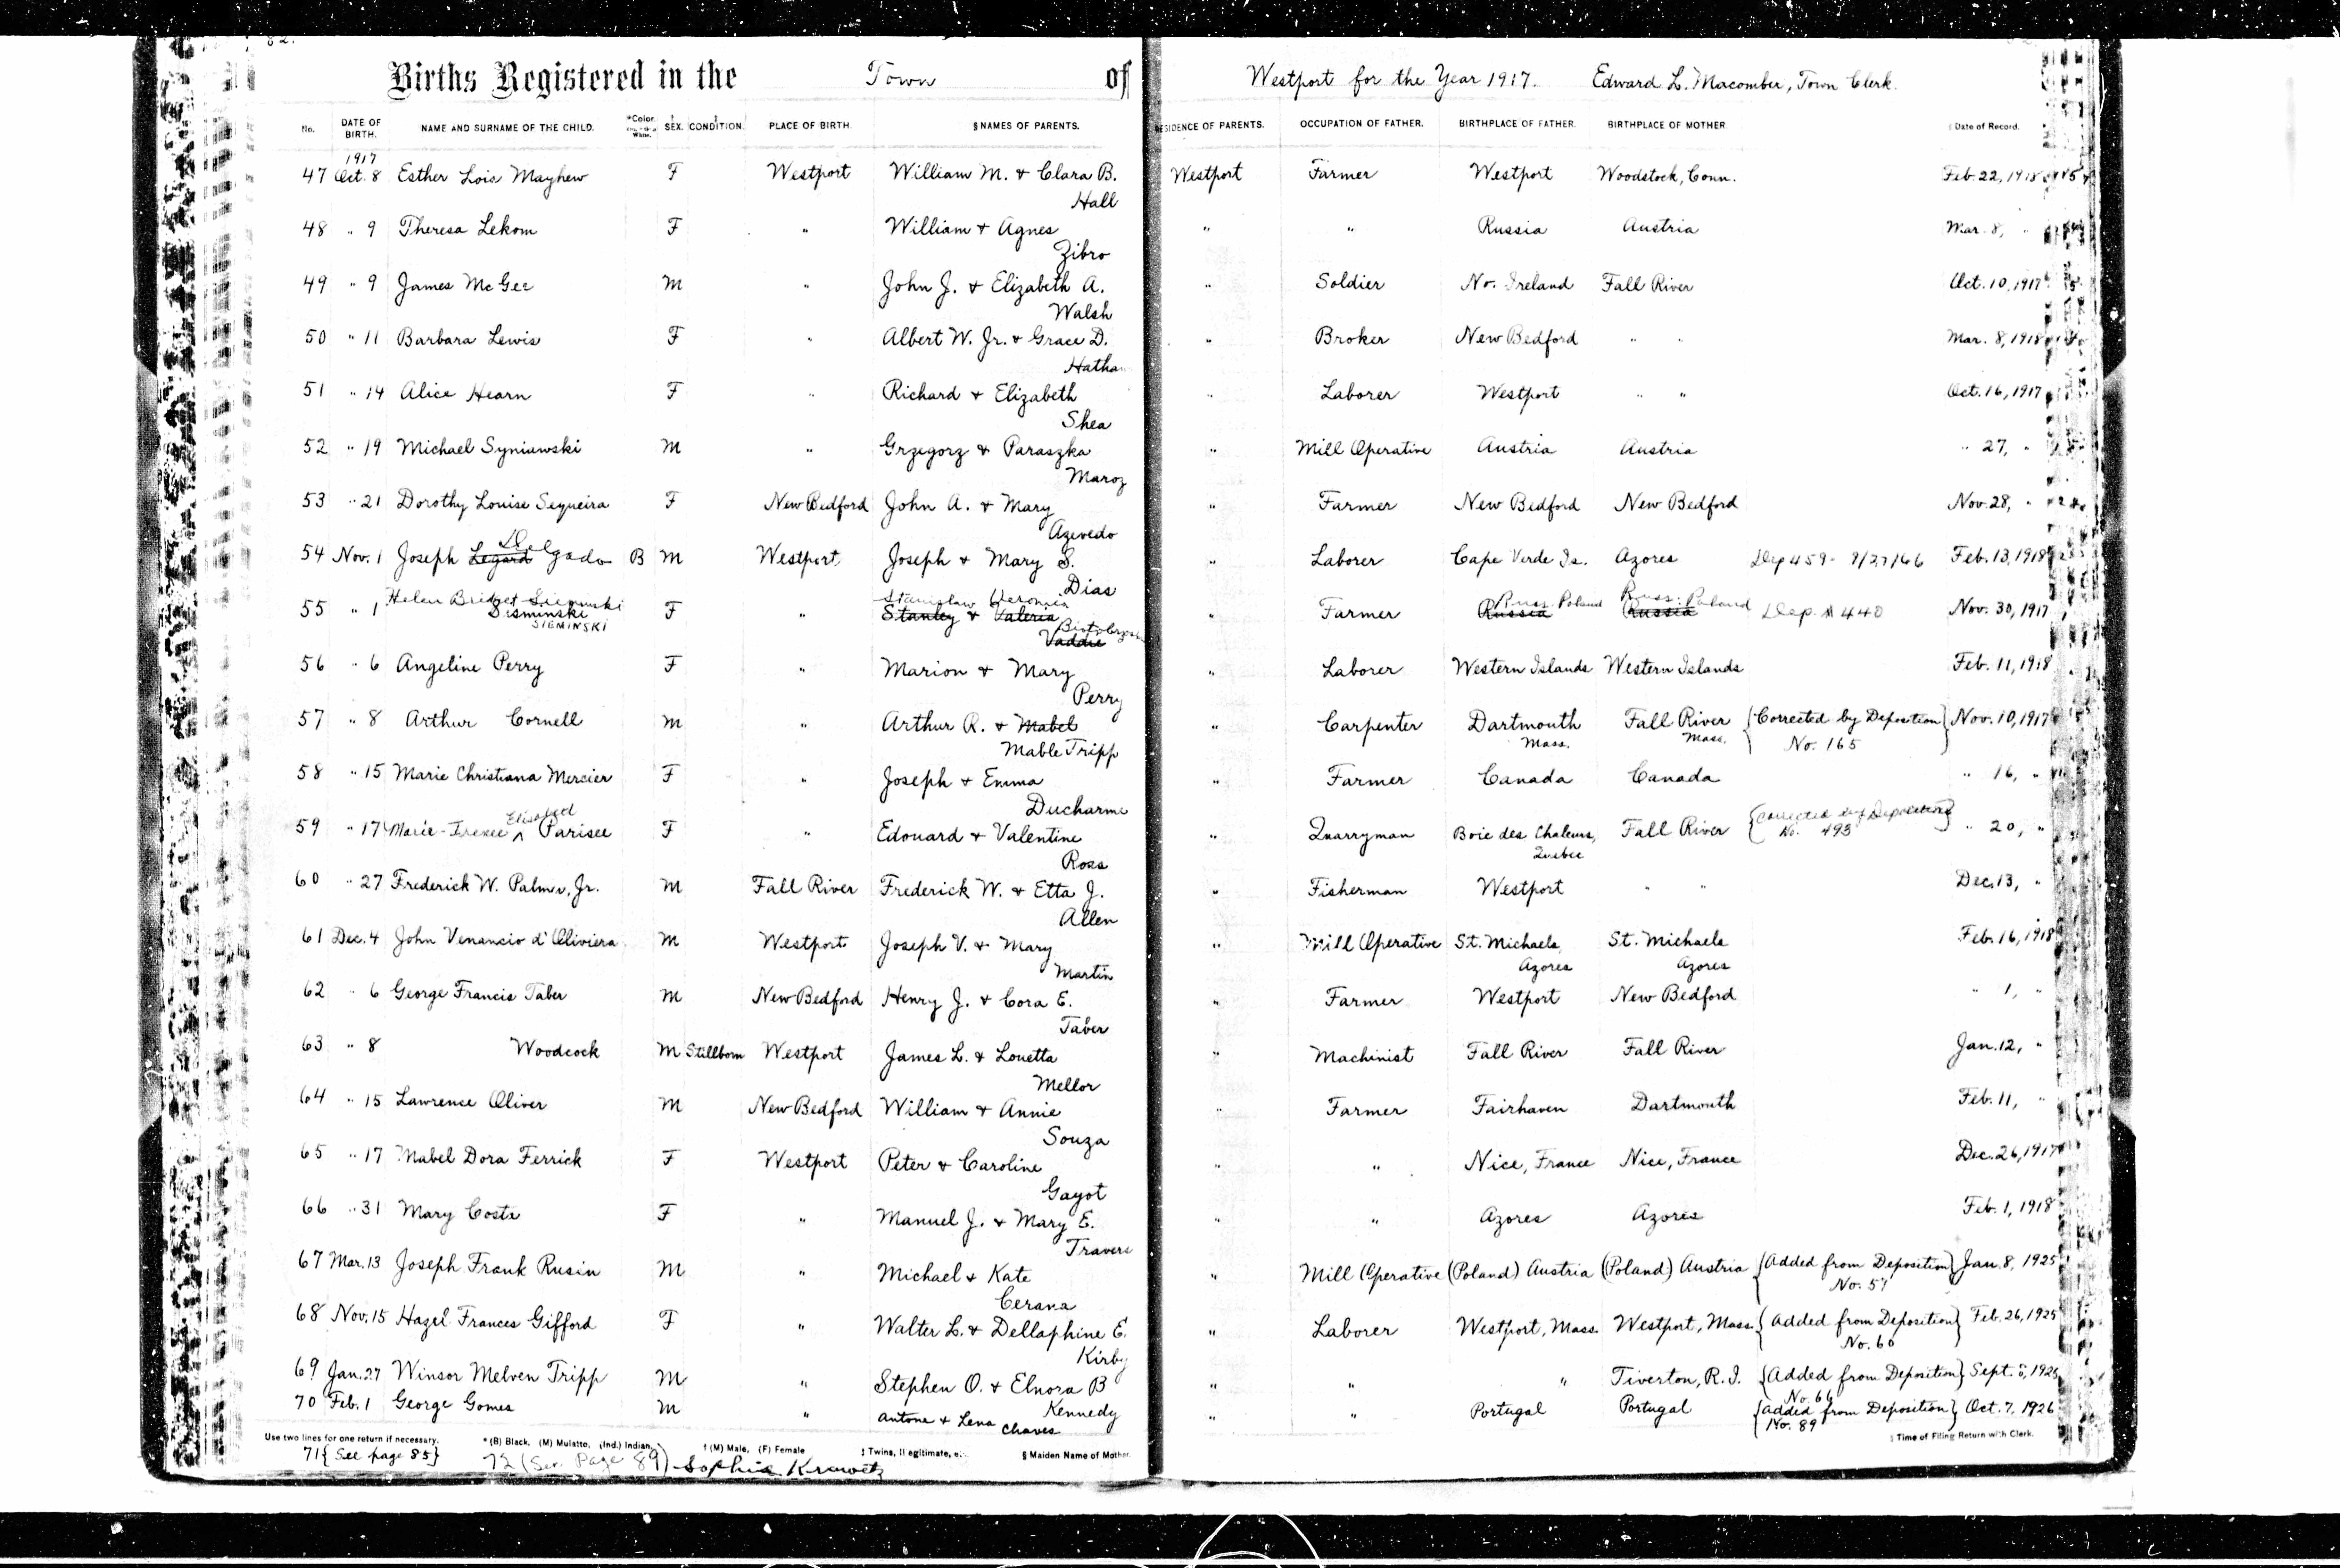 82.
Births Registered in the Town of Westport for the Year 1917. Edward L. Macomber, Town Clerk.
No. DATE OF BIRTH. NAME AND SURNAME OF THE CHILD. *Color. SEX. CONDITION. PLACE OF BIRTH. § NAMES OF PARENTS. RESIDENCE OF PARENTS. OCCUPATION OF FATHER. BIRTHPLACE OF FATHER. BIRTHPLACE OF MOTHER. Date of Record.
1917
47 Oct. 8 Esther Lois Mayhew F Westport William M. & Clara B. Westport Farmer Westport Woodstock, Conn. Feb. 22, 1918
Hall
48 " 9 Theresa Lekom F " William & Agnes " " Russia Austria Mar. 8, "
Zibro
49 " 9 James McGee M " John J. & Elizabeth A. " Soldier No. Ireland Fall River Oct. 10, 1917
Walsh
50 " 11 Barbara Lewis F " Albert W. Jr. & Grace D. " Broker New Bedford " " Mar. 8, 1918
51 " 14 Alice Hearn F " Richard & Elizabeth " Laborer Westport " " Oct. 16, 1917
Shea
52 " 19 Michael Syniawski M " Grzegorz & Paraszka " Mill Operative Austria Austria " 27, "
Maroz
53 " 21 Dorothy Louise Sequeira F New Bedford John A. & Mary " Farmer New Bedford New Bedford Nov. 28, "
Azevedo
54 Nov. 1 Joseph Legard Delgado B M Westport Joseph & Mary S. " Laborer Cape Verde Is. Azores Dep 459- Feb. 13, 1918
Dias
Helen Bridget Sieminski Stanislaw Veronica Russ. Poland Russ. Poland
55 " 1 Sisminski F " Stanley & Valeria " Farmer Russia Russia Dep. # 440 Nov. 30, 1917
SIEMINSKI
Vaddie
56 " 6 Angeline Perry F " Marion & Mary " Laborer Western Islands Western Islands Feb. 11, 1918
Perry
57 " 8 Arthur Cornell M " Arthur R. & Mabel " Carpenter Dartmouth Fall River {Corrected by Deposition} Nov. 10, 1917
Mable Tripp Mass. Mass. No. 165
58 " 15 Marie Christiana Mercier F " Joseph & Emma " Farmer Canada Canada " 16, "
Ducharme
59 " 17 Marie-Irenee ^ Parisee F " Edouard & Valentine " Quarryman Boie des Chaleurs, Fall River {Corrected by Deposition} " 20, "
Ross Quebec No. 493
60 " 27 Frederick W. Palmer, Jr. M Fall River Frederick W. & Etta J. " Fisherman Westport " " Dec. 13, "
Allen
61 Dec. 4 John Venancio d'Oliviera M Westport Joseph V. & Mary " Mill Operative St. Michaels, St. Michaels Feb. 16, 1918
Martin Azores Azores
62 " 6 George Francis Taber M New Bedford Henry J. & Cora E. " Farmer Westport New Bedford " 1, "
Taber
63 " 8 Woodcock M Stillborn Westport James L. & Louetta " Machinist Fall River Fall River Jan. 12, "
Mellor
64 " 15 Lawrence Oliver M New Bedford William & Annie " Farmer Fairhaven Dartmouth Feb. 11, "
Souza
65 " 17 Mabel Dora Ferrick F Westport Peter & Caroline " " Nice, France Nice, France Dec. 26, 1917
Gayot
66 " 31 Mary Costa F " Manuel J. & Mary E. " " Azores Azores Feb. 1, 1918
Travers
67 Mar. 13 Joseph Frank Rusin M " Michael & Kate " Mill Operative (Poland) Austria (Poland) Austria {Added from Deposition} Jan. 8, 1925
Cerana No. 57
68 Nov. 15 Hazel Frances Gifford F " Walter L. & Dellaphine E. " Laborer Westport, Mass. Westport, Mass. {Added from Deposition} Feb. 26, 1925
Kirby No. 60
69 Jan. 27 Winsor Melven Tripp M " Stephen O. & Elnora B " " " Tiverton, R.I. {Added from Deposition} Sept.
Kennedy No. 66
70 Feb. 1 George Gomes M " Antone & Lena " " Portugal Portugal {Added from Deposition} Oct. 7, 1926
Chaves No. 89
Use two lines for one return if necessary. *(B) Black, (M) Mulatto, (Ind.) Indian. † (M) Male, (F) Female ‡ Twins, Illegitimate, § Maiden Name of Mother. Time of Filing Return with Clerk.
71 {See page 85} 72 (See Page 89) Sophia Krawetz